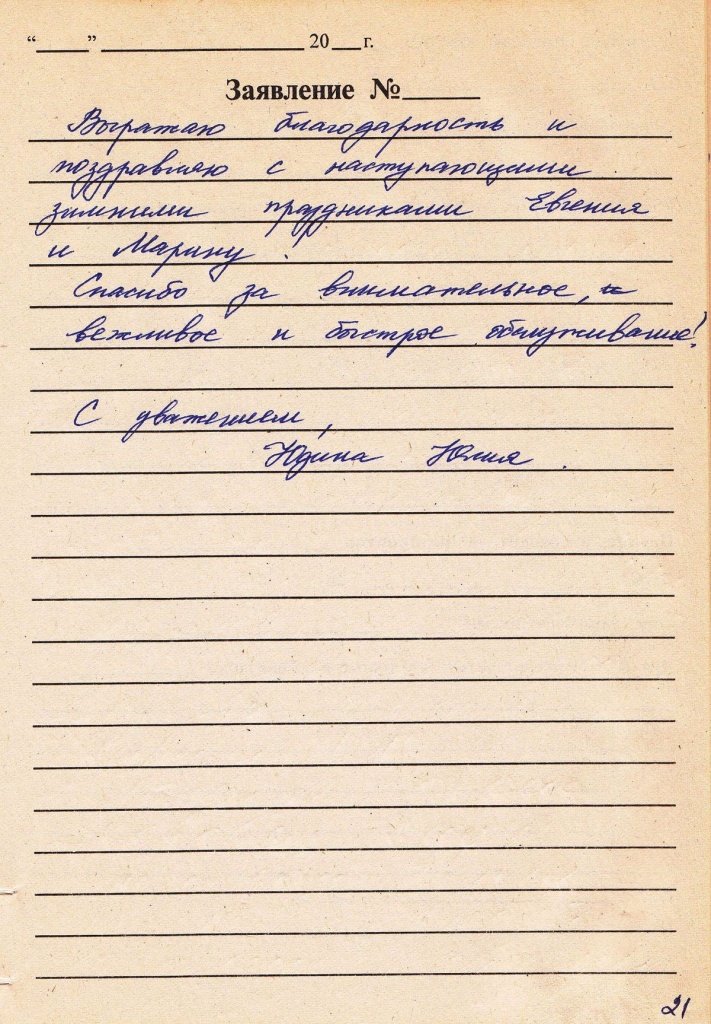 “____” ____________________ 20___г.
Заявление №______
Выражаю благодарность и
поздравляю с наступающими
зимними праздниками Евгения
и Марину!
Спасибо за внимательное, и
вежливое и быстрое обслуживание!
С уважением,
Юдина Юлия.
21